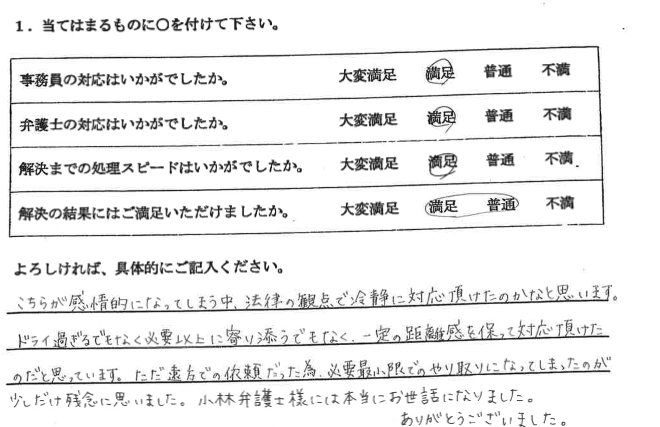 1．当てはまるものに〇を付けて下さい。
事務員の対応はいかがでしたか。 大変満足 満足 普通 不満
弁護士の対応はいかがでしたか。 大変満足 満足 普通 不満
解決までの処理スピードはいかがでしたか。 大変満足 満足 普通 不満
解決の結果にはご満足いただけましたか。 大変満足 満足 普通 不満
よろしければ、具体的にご記入ください。
こちらが感情的になってしまう中、法律の観点で冷静に対応頂けたのかなと思います。
ドライ過ぎるでもなく必要以上に寄り添うでもなく、一定の距離感を保って対応頂けた
のだと思っています。ただ遠方での依頼だった為、必要最小限でのやり取りになってしまったのが
少しだけ残念に思いました。小林弁護士様には本当にお世話になりました。
ありがとうございました。